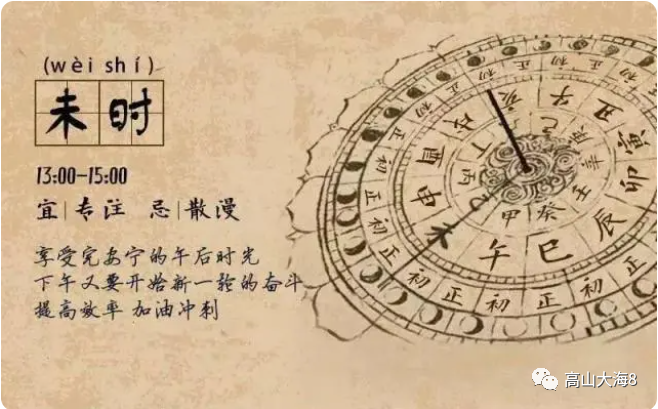 (wèi shí)
未时
13:00-15:00
宜|专注 忌|散漫
享受完安宁的午后时光
下午又要开始新一轮的奋斗
提高效率 加油冲刺
亥 子 丑 寅 卯 辰 巳 午 未 申 酉 戌
甲 癸 壬
丁 丙
正 初 正 初 正 初 正 初 正 初
高山大海8